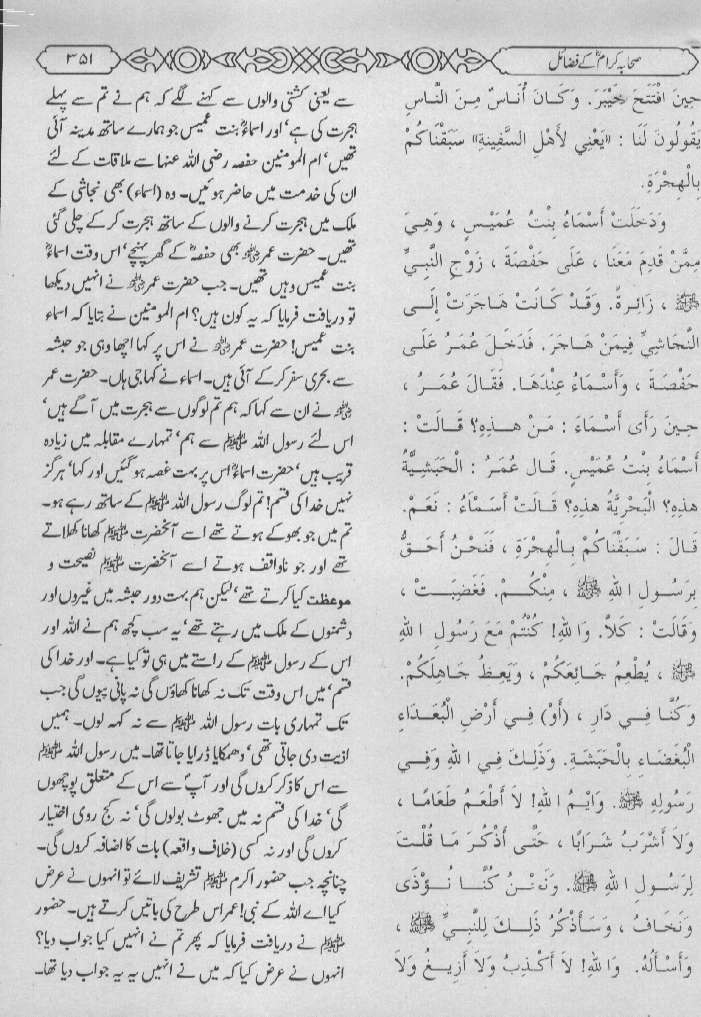 صحابہ کرامؓ کے فضائل
۳۵۱
حِينَ افْتَتَحَ خَيْبَرَ. وَكَانَ أُنَاسٌ مِنَ النَّاسِ
يَقُولُونَ لَنَا : «يَعْنِي لأَهْلِ السَّفِينَةِ» سَبَقْنَاكُمْ
بِالْهِجْرَةِ.
وَدَخَلَتْ أَسْمَاءُ بِنْتُ عُمَيْسٍ ، وَهِيَ
مِمَّنْ قَدِمَ مَعَنَا ، عَلَى حَفْصَةَ ، زَوْجِ النَّبِيِّ
ﷺ ، زَائِرَةً. وَقَدْ كَانَتْ هَاجَرَتْ إِلَى
النَّجَاشِيِّ فِيمَنْ هَاجَرَ. فَدَخَلَ عُمَرُ عَلَى
حَفْصَةَ ، وَأَسْمَاءُ عِنْدَهَا. فَقَالَ عُمَرُ ،
حِينَ رَأَى أَسْمَاءَ : مَنْ هذِهِ؟ قَالَتْ :
أَسْمَاءُ بِنْتُ عُمَيْسٍ. قَالَ عُمَرُ : الْحَبَشِيَّةُ
هذِهِ؟ الْبَحْرِيَّةُ هذِهِ؟ قَالَتْ أَسْمَاءُ : نَعَمْ.
قَالَ : سَبَقْنَاكُمْ بِالْهِجْرَةِ ، فَنَحْنُ أَحَقُّ
بِرَسُولِ اللهِ ﷺ ، مِنْكُمْ. فَغَضِبَتْ ،
وَقَالَتْ : كَلاَّ. وَاللهِ! كُنْتُمْ مَعَ رَسُولِ اللهِ
ﷺ ، يُطْعِمُ جَائِعَكُمْ ، وَيَعِظُ جَاهِلَكُمْ.
وَكُنَّا فِي دَارِ ، (أَوْ) فِي أَرْضِ الْبُعَدَاءِ
الْبُغَضَاءِ بِالْحَبَشَةِ. وَذَلِكَ فِي اللهِ وَفِي
رَسُولِهِ ﷺ. وَايْمُ اللهِ! لاَ أَطْعَمُ طَعَامًا ،
وَلاَ أَشْرَبُ شَرَابًا ، حَتَّى أَذْكُرَ مَا قُلْتَ
لِرَسُولِ اللهِ ﷺ. وَنَحْنُ كُنَّا نُؤْذَى
وَنَخَافُ ، وَسَأَذْكُرُ ذَلِكَ لِلنَّبِيِّ ﷺ ،
وَأَسْأَلُهُ. وَاللهِ! لاَ أَكْذِبُ وَلاَ أَزِيغُ وَلاَ
سے یعنی کشتی والوں سے کہنے لگے کہ ہم نے تم سے پہلے
ہجرت کی ہے‘ اور اسماءؓ بنت عمیس جو ہمارے ساتھ مدینہ آئی
تھیں‘ ام المومنین حفصہ رضی اللہ عنہا سے ملاقات کے لئے
ان کی خدمت میں حاضر ہوئیں۔ وہ (اسماء) بھی نجاشی کے
ملک میں ہجرت کرنے والوں کے ساتھ ہجرت کر کے چلی گئی
تھیں۔ حضرت عمرؓ بھی حفصہؓ کے گھر پہنچے‘ اس وقت اسماءؓ
بنت عمیس وہیں تھیں۔ جب حضرت عمرؓ نے انہیں دیکھا
تو دریافت فرمایا کہ یہ کون ہیں؟ ام المومنین نے بتایا کہ اسماء
بنت عمیس! حضرت عمرؓ نے اس پر کہا اچھا وہی جو حبشہ
سے بحری سفر کرکے آئی ہیں۔ اسماء نے کہا جی ہاں۔ حضرت عمر
ؓ نے ان سے کہا کہ ہم تم لوگوں سے ہجرت میں آگے ہیں‘
اس لئے رسول اللہ ﷺ سے ہم‘ تمہارے مقابلہ میں زیادہ
قریب ہیں‘ حضرت اسماءؓ اس پر بہت غصہ ہو گئیں اور کہا‘ ہرگز
نہیں خدا کی قسم! تم لوگ رسول اللہ ﷺ کے ساتھ رہے ہو۔
تم میں جو بھوکے ہوتے تھے اسے آنحضرت ﷺ کھانا کھلاتے
تھے اور جو ناواقف ہوتے اسے آنحضرت ﷺ نصیحت و
موعظت کیا کرتے تھے‘ لیکن ہم بہت دور حبشہ میں غیروں اور
دشمنوں کے ملک میں رہتے تھے‘ یہ سب کچھ ہم نے اللہ اور
اس کے رسول ﷺ کے راستے میں ہی تو کیا ہے۔ اور خدا کی
قسم‘ میں اس وقت تک نہ کھانا کھاؤں گی نہ پانی پیوں گی جب
تک تمہاری بات رسول اللہ ﷺ سے نہ کہہ لوں۔ ہمیں
اذیت دی جاتی تھی‘ دھمکایا ڈرایا جاتا تھا۔ میں رسول اللہ ﷺ
سے اس کا ذکر کروں گی اور آپؐ سے اس کے متعلق پوچھوں
گی‘ خدا کی قسم نہ میں جھوٹ بولوں گی‘ نہ کج روی اختیار
کروں گی اور نہ کسی (خلاف واقعہ) بات کا اضافہ کروں گی۔
چنانچہ جب حضور اکرم ﷺ تشریف لائے تو انہوں نے عرض
کیا اے اللہ کے نبی! عمر اس طرح کی باتیں کرتے ہیں۔ حضور
ﷺ نے دریافت فرمایا کہ پھر تم نے انہیں کیا جواب دیا؟
انہوں نے عرض کیا کہ میں نے انہیں یہ یہ جواب دیا تھا۔